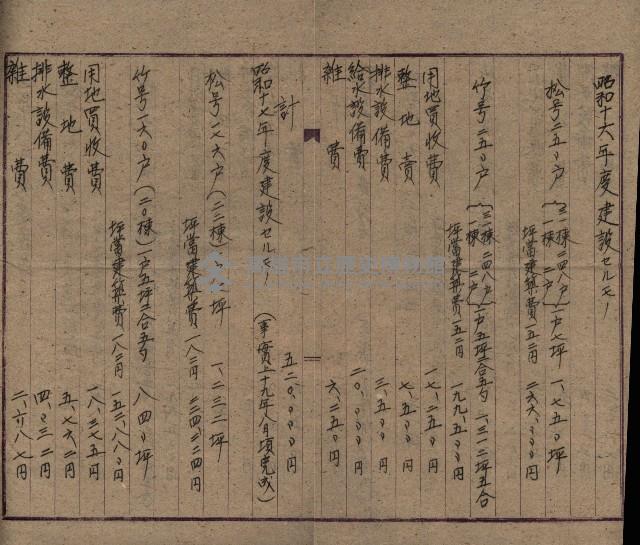 昭和十六年度建設セルモノ
松号二五〇戸 {三一棟 二四八戸 一棟 二戸} 一戸七坪 一、七五〇坪
坪當建築費一五二円 二六六、〇〇〇円
竹号二五〇戸 {三一棟 二四八戸 一棟 二戸} 一戸五坪二合五勺 一、三一二坪五合
坪當建築費一五二円 一九九、五〇〇円
用地買收費 一七、二五〇円
整地費 七、五〇〇円
排水設備費 三、五〇〇円
給水設備費 二〇、〇〇〇円
雜費 六、二五〇円
計 五二〇、〇〇〇円
昭和十七年度建設セルモノ (事實上十九年八月頃完成)
松号一七六戸(二二棟)一戸七坪 一、二三二坪
坪當建築費一八二円 二二四、二二四円
竹号一六〇戸(二〇棟)一戸五坪二合五勺 八四〇坪
坪當建築費一八二円 一五二、八八〇円
用地買收費 一八、三七五円
整地費 五、七六二円
排水設備費 四、〇三二円
雜費 二、六八七円
高雄市立歷史博物館